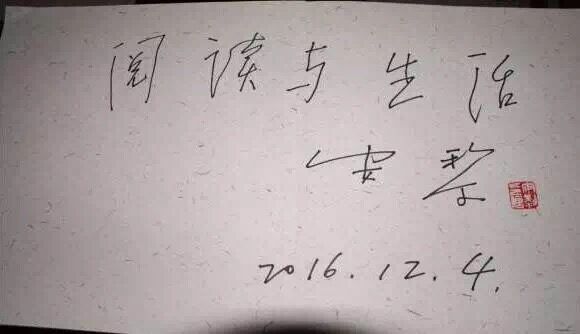 阅读与生活
安黎
2016.12.4.